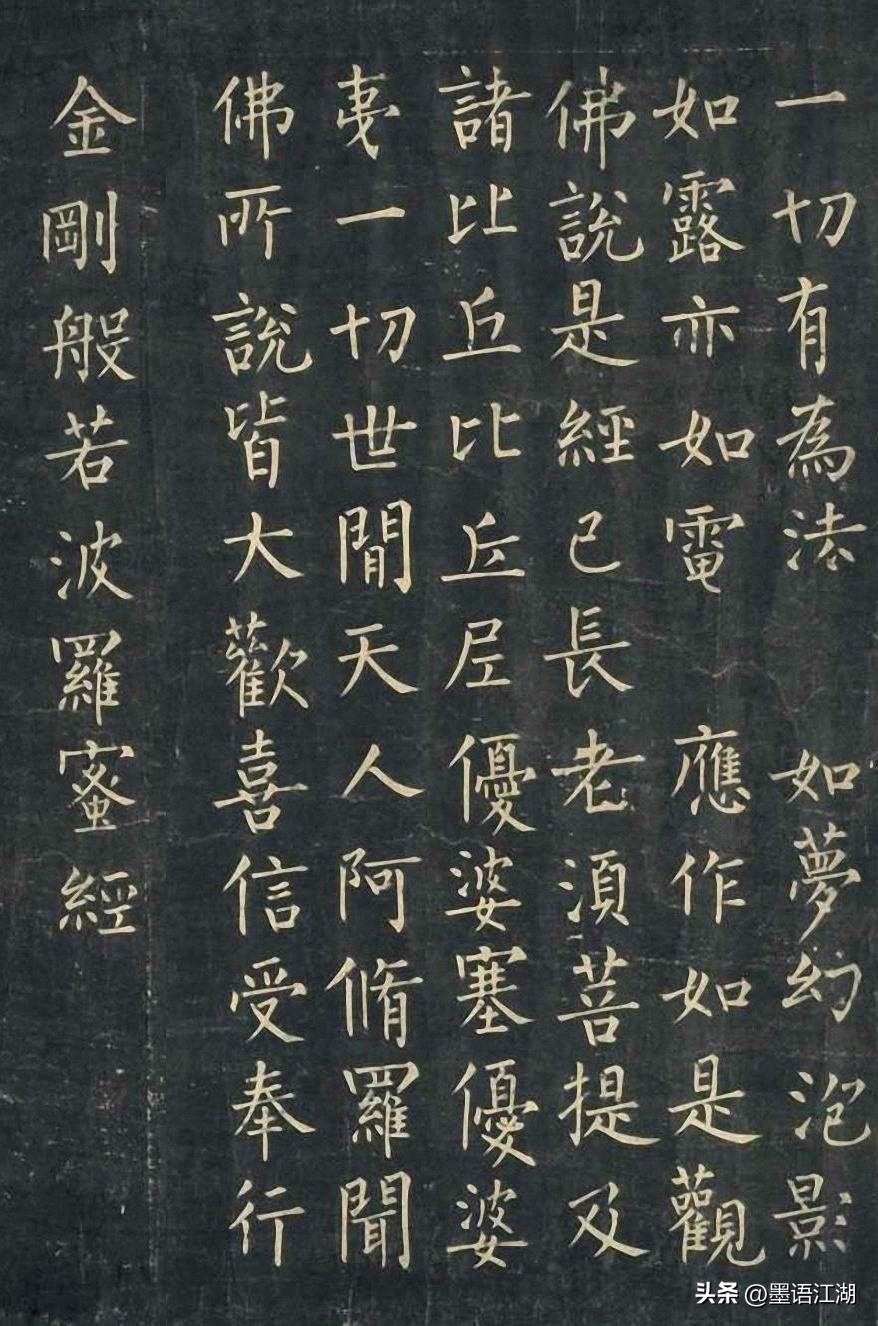 一切有為法 如夢幻泡影
如露亦如電 應作如是觀
佛說是經已長老須菩提及
諸比丘比丘尼優婆塞優婆
夷一切世間天人阿脩羅聞
佛所說皆大歡喜信受奉行
金剛般若波羅蜜經
头条 @墨语江湖